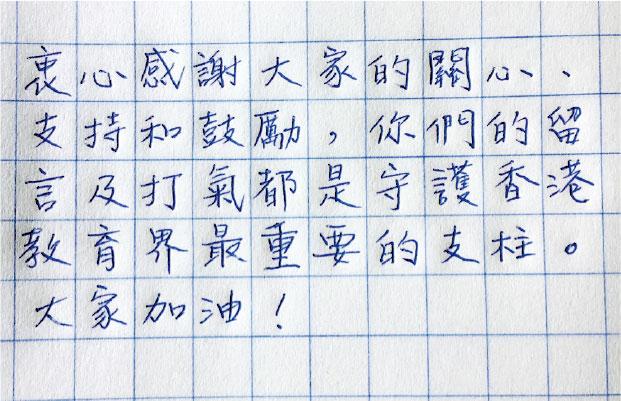 衷心感謝大家的關心、
支持和鼓勵，你們的留
言及打氣都是守護香港
教育界最重要的支柱。
大家加油！